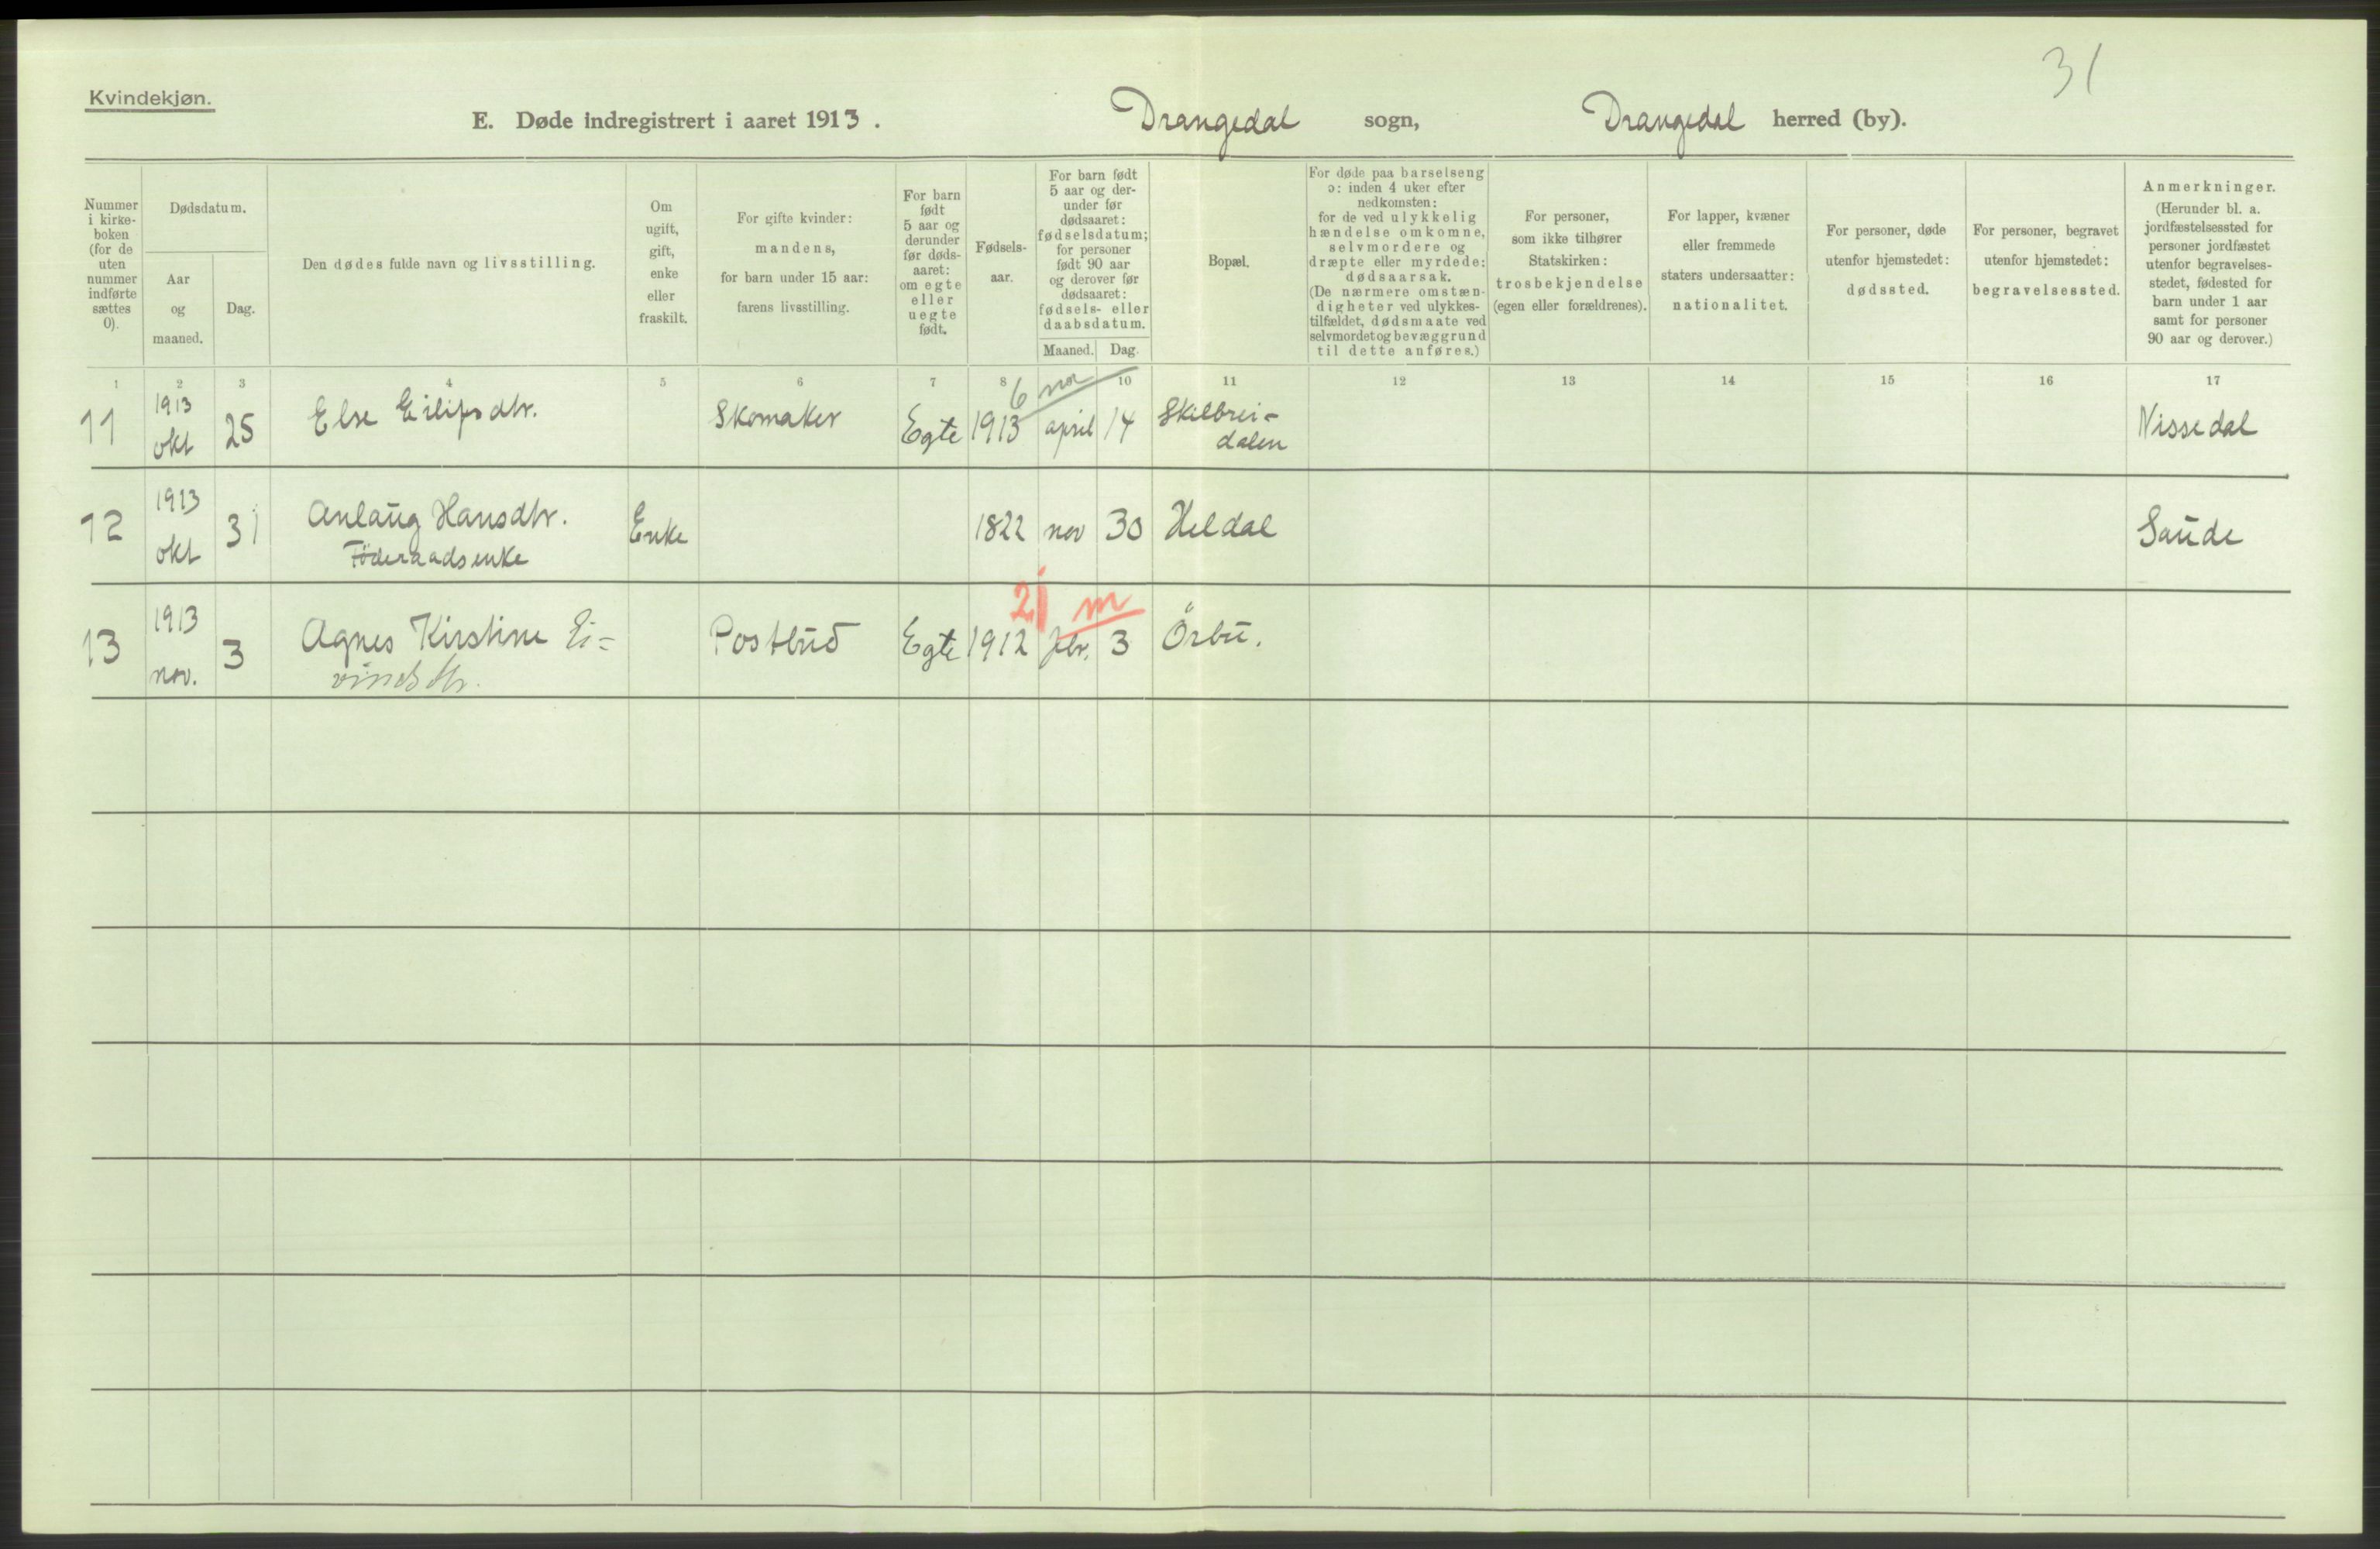 31
Kvindekjøn.
E. Døde indregistrert i aaret 1913. Drangedal sogn, Drangedal herred (by).
Nummer
i kirke-
boken
(for de
uten
nummer
indførte
sættes
0).
Dødsdatum.
Aar
og
maaned.
Dag.
Den dødes fulde navn og livsstilling.
Om
ugift,
gift,
enke
eller
fraskilt.
For gifte kvinder:
mandens,
for barn under 15 aar:
farens livsstilling.
For barn
født
5 aar og
derunder
før døds-
aaret:
om egte
eller
uegte
født.
Fødsels-
aar.
For barn født
5 aar og der-
under før
dødsaaret:
fødselsdatum;
for personer
født 90 aar
og derover før
dødsaaret:
fødsels- eller
daabsdatum.
Maaned. Dag.
Bopæl.
For døde paa barselseng
ɔ: inden 4 uker efter
nedkomsten:
for de ved ulykkelig
hændelse omkomne,
selvmordere og
dræpte eller myrdede:
dødsaarsak.
(De nærmere omstæn-
digheter ved ulykkes-
tilfældet, dødsmaate ved
selvmordet og bevæggrund
til dette anføres.)
For personer,
som ikke tilhører
Statskirken:
trosbekjendelse
(egen eller forældrenes).
For lapper, kvæner
eller fremmede
staters undersaatter:
nationalitet.
For personer, døde
utenfor hjemstedet:
dødssted.
For personer, begravet
utenfor hjemstedet:
begravelsessted.
Anmerkninger.
(Herunder bl. a.
jordfæstelsessted for
personer jordfæstet
utenfor begravelses-
stedet, fødested for
barn under 1 aar
samt for personer
90 aar og derover.)
1 2 3 4 5 6 7 8 10 11 12 13 14 15 16 17
11 1913 okt 25 Else Eilifsdtr. Skomaker Egte 1913 april 14 Skilbrei-
dalen Nissedal
12 1913 okt 31 Anlaug Hansdtr.
Föderaadsenke Enke 1822 nov 30 Heldal Saude
21 m
13 1913 nov. 3 Agnes Kirstine Ei-
vindsdtr. Postbud Egte 1912 febr. 3 Örbu.